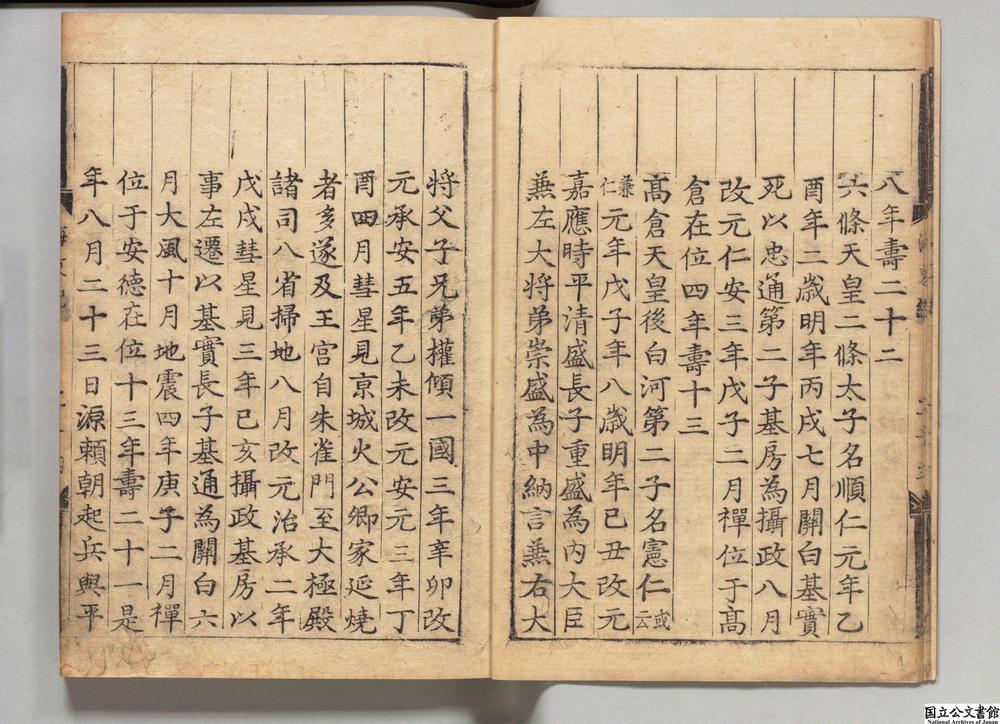 八年壽二十二
六條天皇二條太子名順仁元年乙
酉年二歲明年丙戌七月關白基實
死以忠通第二子基房為攝政八月
改元仁安三年戊子二月禪位于高
倉在位四年壽十三
高倉天皇後白河第二子名憲仁或云
兼仁元年戊子年八歲明年己丑改元
嘉應時平清盛長子重盛為內大臣
兼左大將弟崇盛為中納言兼右大
將父子兄弟權傾一國三年辛卯改
元承安五年乙未改元安元三年丁
酉四月彗星見京城火公卿家延燒
者多遂及王宮自朱雀門至大極殿
諸司八省掃地八月改元治承二年
戊戌彗星見三年己亥攝政基房以
事左遷以基實長子基通為關白六
月大風十月地震四年庚子二月禪
位于安德在位十三年壽二十一是
年八月二十三日源賴朝起兵與平
国立公文書館
National Archives of Japan